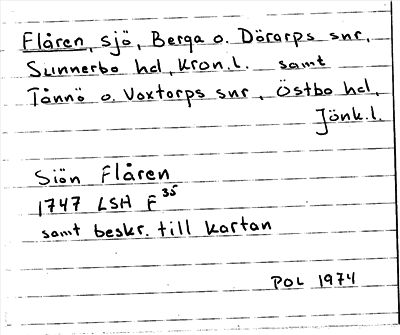 Flåren, sjö, Berga o. Dörarps snr,
Sunnerbo hd, Kron.l. samt
Tånnö o. Voxtorps snr, Östbo hd,
Jönk.l.
Siön Flåren
1747 LSH F 35
samt beskr. till kartan
POL 1974